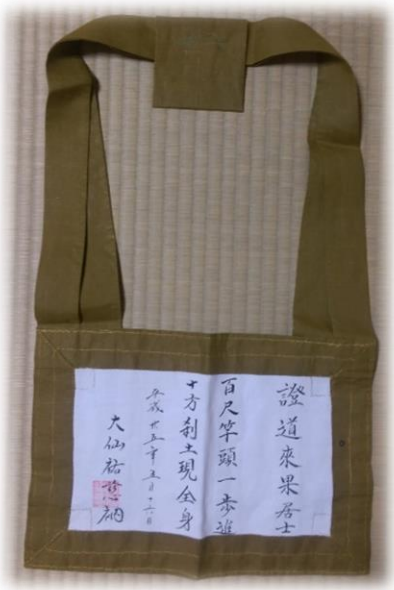 證道來果居士
百尺竿頭一歩進
十方刹土現全身
平成廿五年五月十六日
大仙祐衲